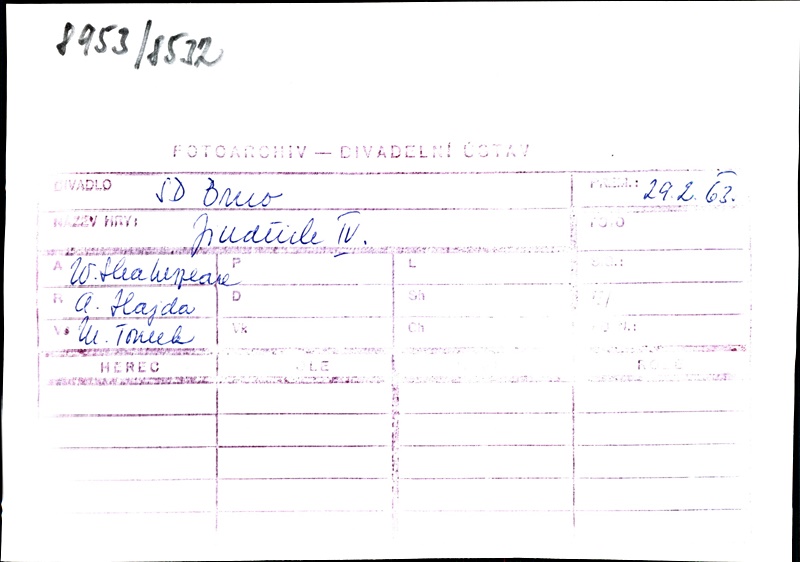 8953/8532
FOTOARCHIV — DIVADELNÍ ÚSTAV
DIVADLO SD Brno PREM.: 29.2.63.
NÁZEV HRY: Jindřich IV. FOTO
A W. Shakespeare P L
R A. Hajda D Sh
V M. Tomek Vk Ch
HEREC ROLE